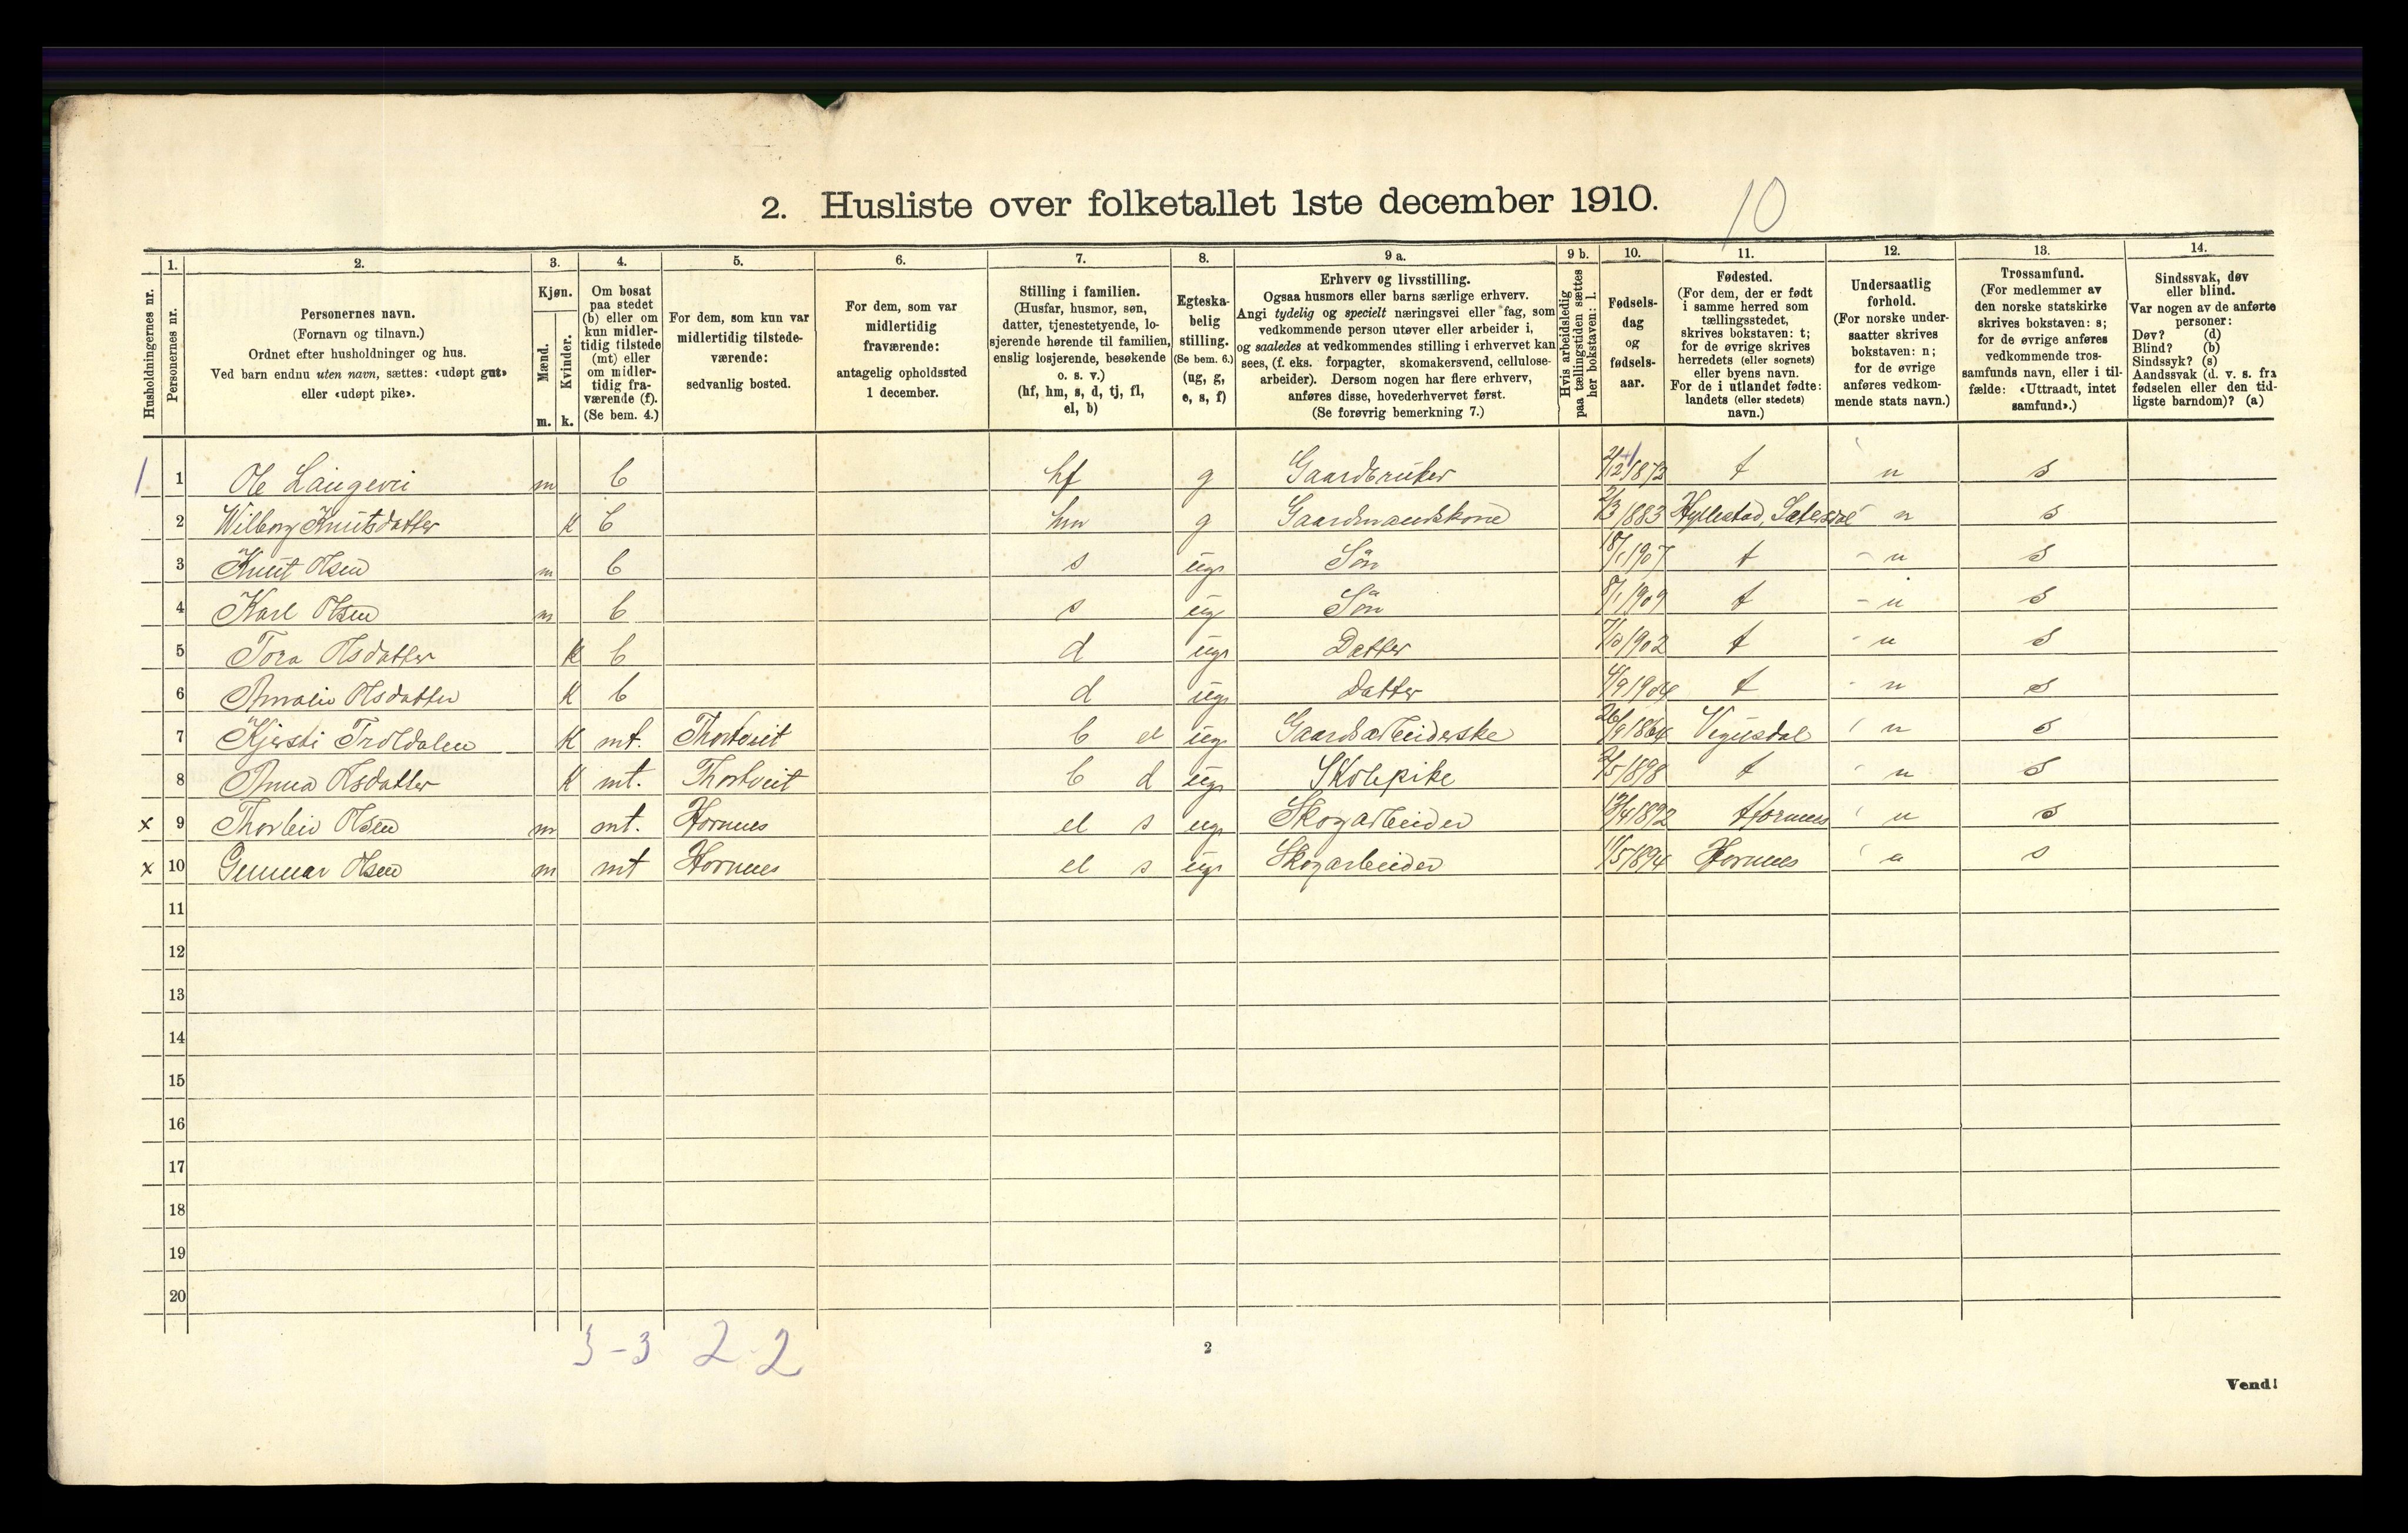 2. Husliste over folketallet 1ste december 1910.
10
Husholdningernes nr.
1.
Personernes nr.
2.
Personernes navn.
(Fornavn og tilnavn.)
Ordnet efter husholdninger og hus.
Ved barn endnu uten navn, sættes: «udøpt gut»
eller «udøpt pike».
3.
Kjøn.
Mænd.
Kvinder.
m. k.
4.
Om bosat
paa stedet
(b) eller om
kun midler-
tidig tilstede
(mt) eller
om midler-
tidig fra-
værende (f).
(Se bem. 4.)
5.
For dem, som kun var
midlertidig tilstede-
værende:
sedvanlig bosted.
6.
For dem, som var
midlertidig
fraværende:
antagelig opholdssted
1 december.
7.
Stilling i familien.
(Husfar, husmor, søn,
datter, tjenestetyende, lo-
sjerende hørende til familien,
enslig losjerende, besøkende
o. s. v.)
(hf, hm, s, d, tj, fl,
el, b)
8.
Egteska-
belig
stilling.
(Se bem. 6.)
(ug, g,
e, s, f)
9 a.
Erhverv og livsstilling.
Ogsaa husmors eller barns særlige erhverv.
Angi tydelig og specielt næringsvei eller fag, som
vedkommende person utøver eller arbeider i,
og saaledes at vedkommendes stilling i erhvervet kan
sees, (f. eks. forpagter, skomakersvend, cellulose-
arbeider). Dersom nogen har flere erhverv,
anføres disse, hovederhvervet først.
(Se forøvrig bemerkning 7.)
9 b.
Hvis arbeidsledig
paa tællingstiden sættes
her bokstaven: l.
10.
Fødsels-
dag
og
fødsels-
aar.
11.
Fødested.
(For dem, der er født
i samme herred som
tællingsstedet,
skrives bokstaven: t;
for de øvrige skrives
herredets (eller sognets)
eller byens navn.
For de i utlandet fødte:
landets (eller stedets)
navn.)
12.
Undersaatlig
forhold.
(For norske under-
saatter skrives
bokstaven: n;
for de øvrige
anføres vedkom-
mende stats navn.)
13.
Trossamfund.
(For medlemmer av
den norske statskirke
skrives bokstaven: s;
for de øvrige anføres
vedkommende tros-
samfunds navn, eller i til-
fælde: «Uttraadt, intet
samfund».)
14.
Sindssvak, døv
eller blind.
Var nogen av de anførte
personer:
Døv? (d)
Blind? (b)
Sindssyk? (s)
Aandssvak (d. v. s. fra
fødselen eller den tid-
ligste barndom)? (a)
1 1 Ole m b hf g Gaardbruker 2/12 1872 t n s
2 Wilborg Knutsdatter K b hm g Gaardmandskone 2/3 1883 Hyllestad, Sætersdal n s
3 Knut Olsen m b s ug Søn 18/1 1907 t n s
4 Karl Olsen m b s ug Søn 8/1 1909 t n s
5 Tora Olsdatter K b d ug Datter 7/10 1902 t n s
6 Amalie Olsdatter K b d ug Datter 4/9 1904 t n s
7 Kjersti Troldalen K mt. Thortveit b el ug Gaardsarbeiderske 26/9 1864 Vegusdal n s
8 Anna Olsdatter K mt. Thortveit b d ug Skolepike 2/5 1898 t n s
x 9 Thorleiv Olsen m mt. Hornnes el s ug Skogarbeider 13/4 1892 Hornnes n s
x 10 Gunnar Olsen m mt Hornnes el s ug Skogarbeider 11/5 1894 Hornnes n s
11
12
13
14
15
16
17
18
19
20
3-3 2-2
2
Vend!